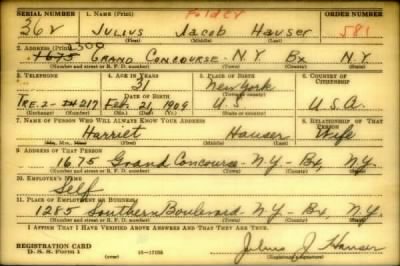 SERIAL NUMBER 1. NAME (Print) Folder ORDER NUMBER
362 Julius Jacob Hauser 581
(First) (Middle) (Last)
2. ADDRESS (Print) 1300
1675 GRAND CONCOURSE N.Y. Bx N.Y.
(Number and street or R. F. D. number) (Town) (County) (State)
3. TELEPHONE 4. AGE IN YEARS 5. PLACE OF BIRTH 6. COUNTRY OF CITIZENSHIP
31 New York
DATE OF BIRTH
TRE. 2- 217 Feb. 21, 1909 U.S. U.S.A.
(Exchange) (Number) (Mo.) (Day) (Yr.) (State or country)
7. NAME OF PERSON WHO WILL ALWAYS KNOW YOUR ADDRESS 8. RELATIONSHIP OF THAT PERSON
Harriet Hauser Wife
(Mr., Mrs., Miss) (First) (Middle) (Last)
9. ADDRESS OF THAT PERSON
1675 Grand Concourse - N.Y. - Bx, N.Y.
(Number and street or R. F. D. number) (Town) (County) (State)
10. EMPLOYER'S NAME
Self
11. PLACE OF EMPLOYMENT OR BUSINESS
1285 Southern Boulevard - N.Y. - Bx, N.Y.
(Number and street or R. F. D. number) (Town) (County) (State)
I AFFIRM THAT I HAVE VERIFIED ABOVE ANSWERS AND THAT THEY ARE TRUE.
REGISTRATION CARD Julius J Hauser
D. S. S. Form 1 (Registrant's signature)